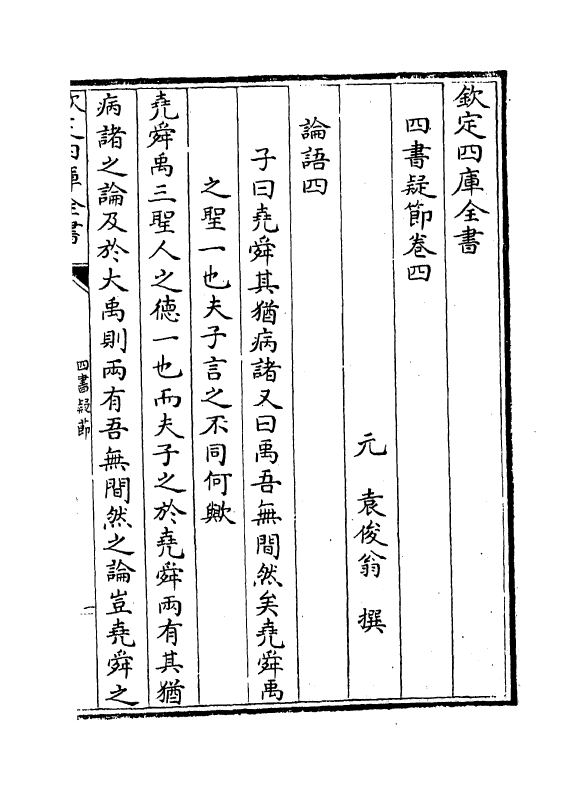 欽定四庫全書
四書疑節卷四
元　袁俊翁　撰
論語四
子曰堯舜其猶病諸又曰禹吾無間然矣堯舜禹
之聖一也夫子言之不同何歟
堯舜禹三聖人之德一也而夫子之於堯舜兩有其猶
病諸之論及於大禹則兩有吾無間然之論豈堯舜之
欽定四庫全書
四書疑節
一